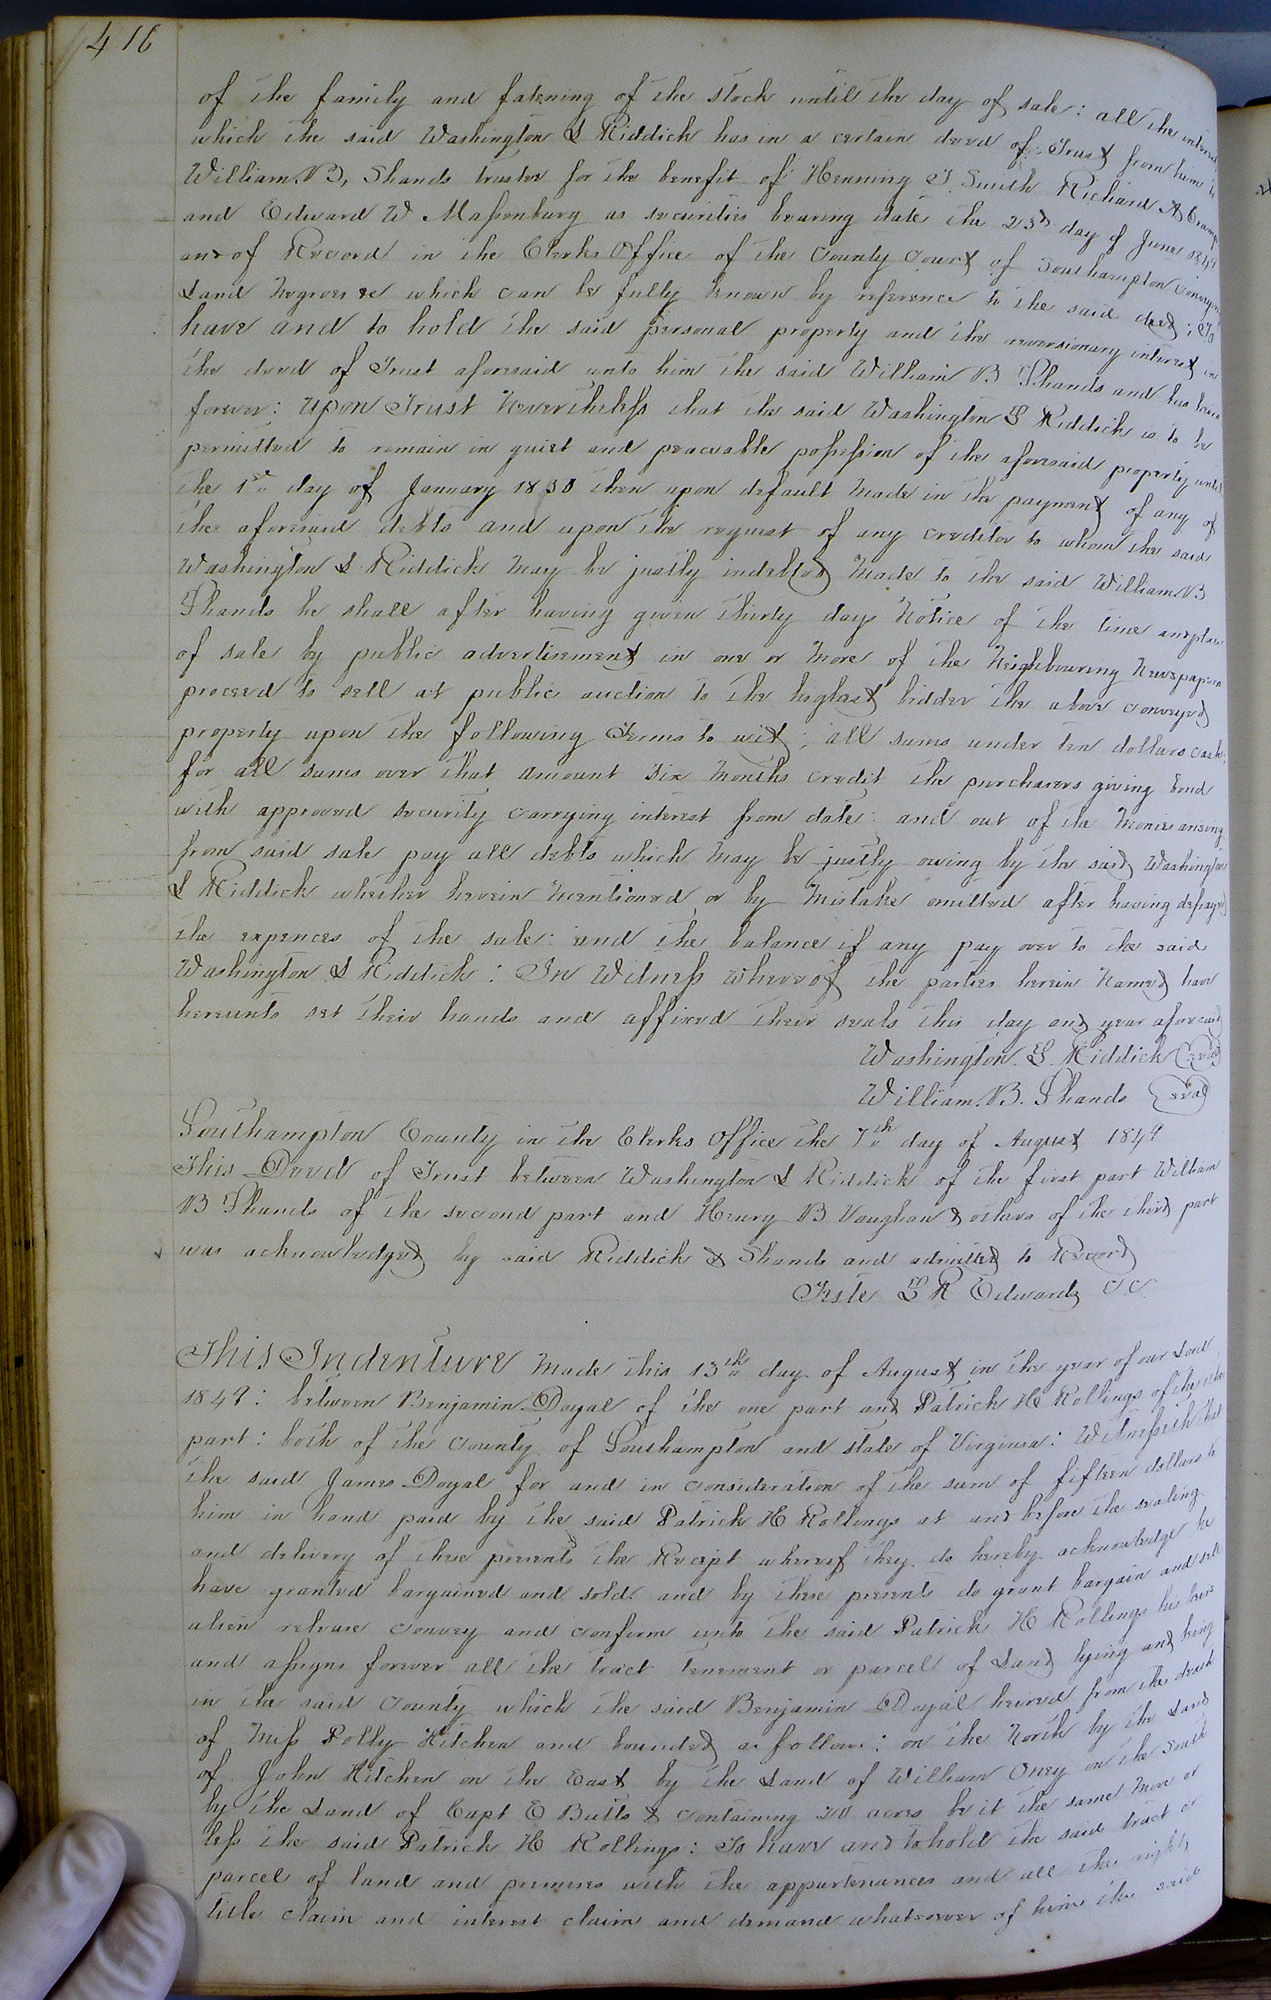 416
of the family and fatening of the stock until the day of sale: all the interest
which the said Washington L Riddick has in a certain deed of Trust from him to
William, B, Shands trustee for the benefit of Henning T Smith Richard A
and Edward W Massenburg as securities bearing date the 23d day of June 1849
and of Record in the Clerks Office of the County Court of Southampton conveying
Land Negroes &c which can be fully known by reference to the said deed; To
have and to hold the said personal property and the reversionary interest in
the deed of Trust aforesaid unto him the said William B Shands and his heirs
forever: Upon Trust Nevertheless that the said Washington L Riddick is to be
permitted to remain in quiet and peaceable possession of the aforesaid property until
the 1st day of January 1850 then upon default made in the payment of any of
the aforesaid debts and upon the request of any creditor to whom the said
Washington L Riddick may be justly indebted made to the said William B
Shands he shall after having given thirty days Notice of the time and place
of sale by public advertisement in one or more of the Neighbouring Newspapers
proceed to sell at public auction to the highest bidder the above conveyed
property upon the following Terms to wit; all sums under ten dollars cash;
for all sums over that amount six months credit the purchasers giving bond
with approved security carrying interest from date: and out of the Monies arising
from said sale pay all debts which may be justly owing by the said Washington
L Riddick whether herein mentioned or by mistake omitted after having defrayed
the expences of the sale: and the balance if any pay over to the said
Washington L Riddick: In Witness whereof the parties herein Named have
hereunto set their hands and affixed their seals this day and year aforesaid
Washington. L. Riddick (seal)
William. B. Shands (seal)
Southampton County in the Clerks Office the 7th day of August 1849
This Deed of Trust between Washington L Riddick of the first part William
B Shands of the second part and Henry B Vaughan & others of the third part
was acknowledged by said Riddick & Shands and admitted to Record
Teste L R Edwards C.C.
This Indenture made this 13th day of August in the year of our Lord
1849: between Benjamin Doyal of the one part and Patrick H Rollings of the other
part: both of the County of Southampton and state of Virginia: Witnesseth that
the said James Doyal for and in consideration of the sum of fifteen dollars to
him in hand paid by the said Patrick H Rollings at and before the sealing
and delivery of these presents the Receipt whereof they do hereby acknowledge he
have granted bargained and sold and by these presents do grant bargain and sell
alien release convey and confirm unto the said Patrick H Rollings his heirs
and assigns forever all the tract tenement or parcel of Land lying and being
in the said County which the said Benjamin Doyal heired from the death
of Miss Polly Kitchen and bounded as follows: on the North by the Land
of John Kitchen on the East by the Land of William Oney on the South
by the Land of Capt E Butts & containing acres be it the same more or
less the said Patrick H Rollings: To have and to hold the said tract or
parcel of land and premises with the appurtenances and all the right
title claim and interest claim and demand whatsoever of him the said